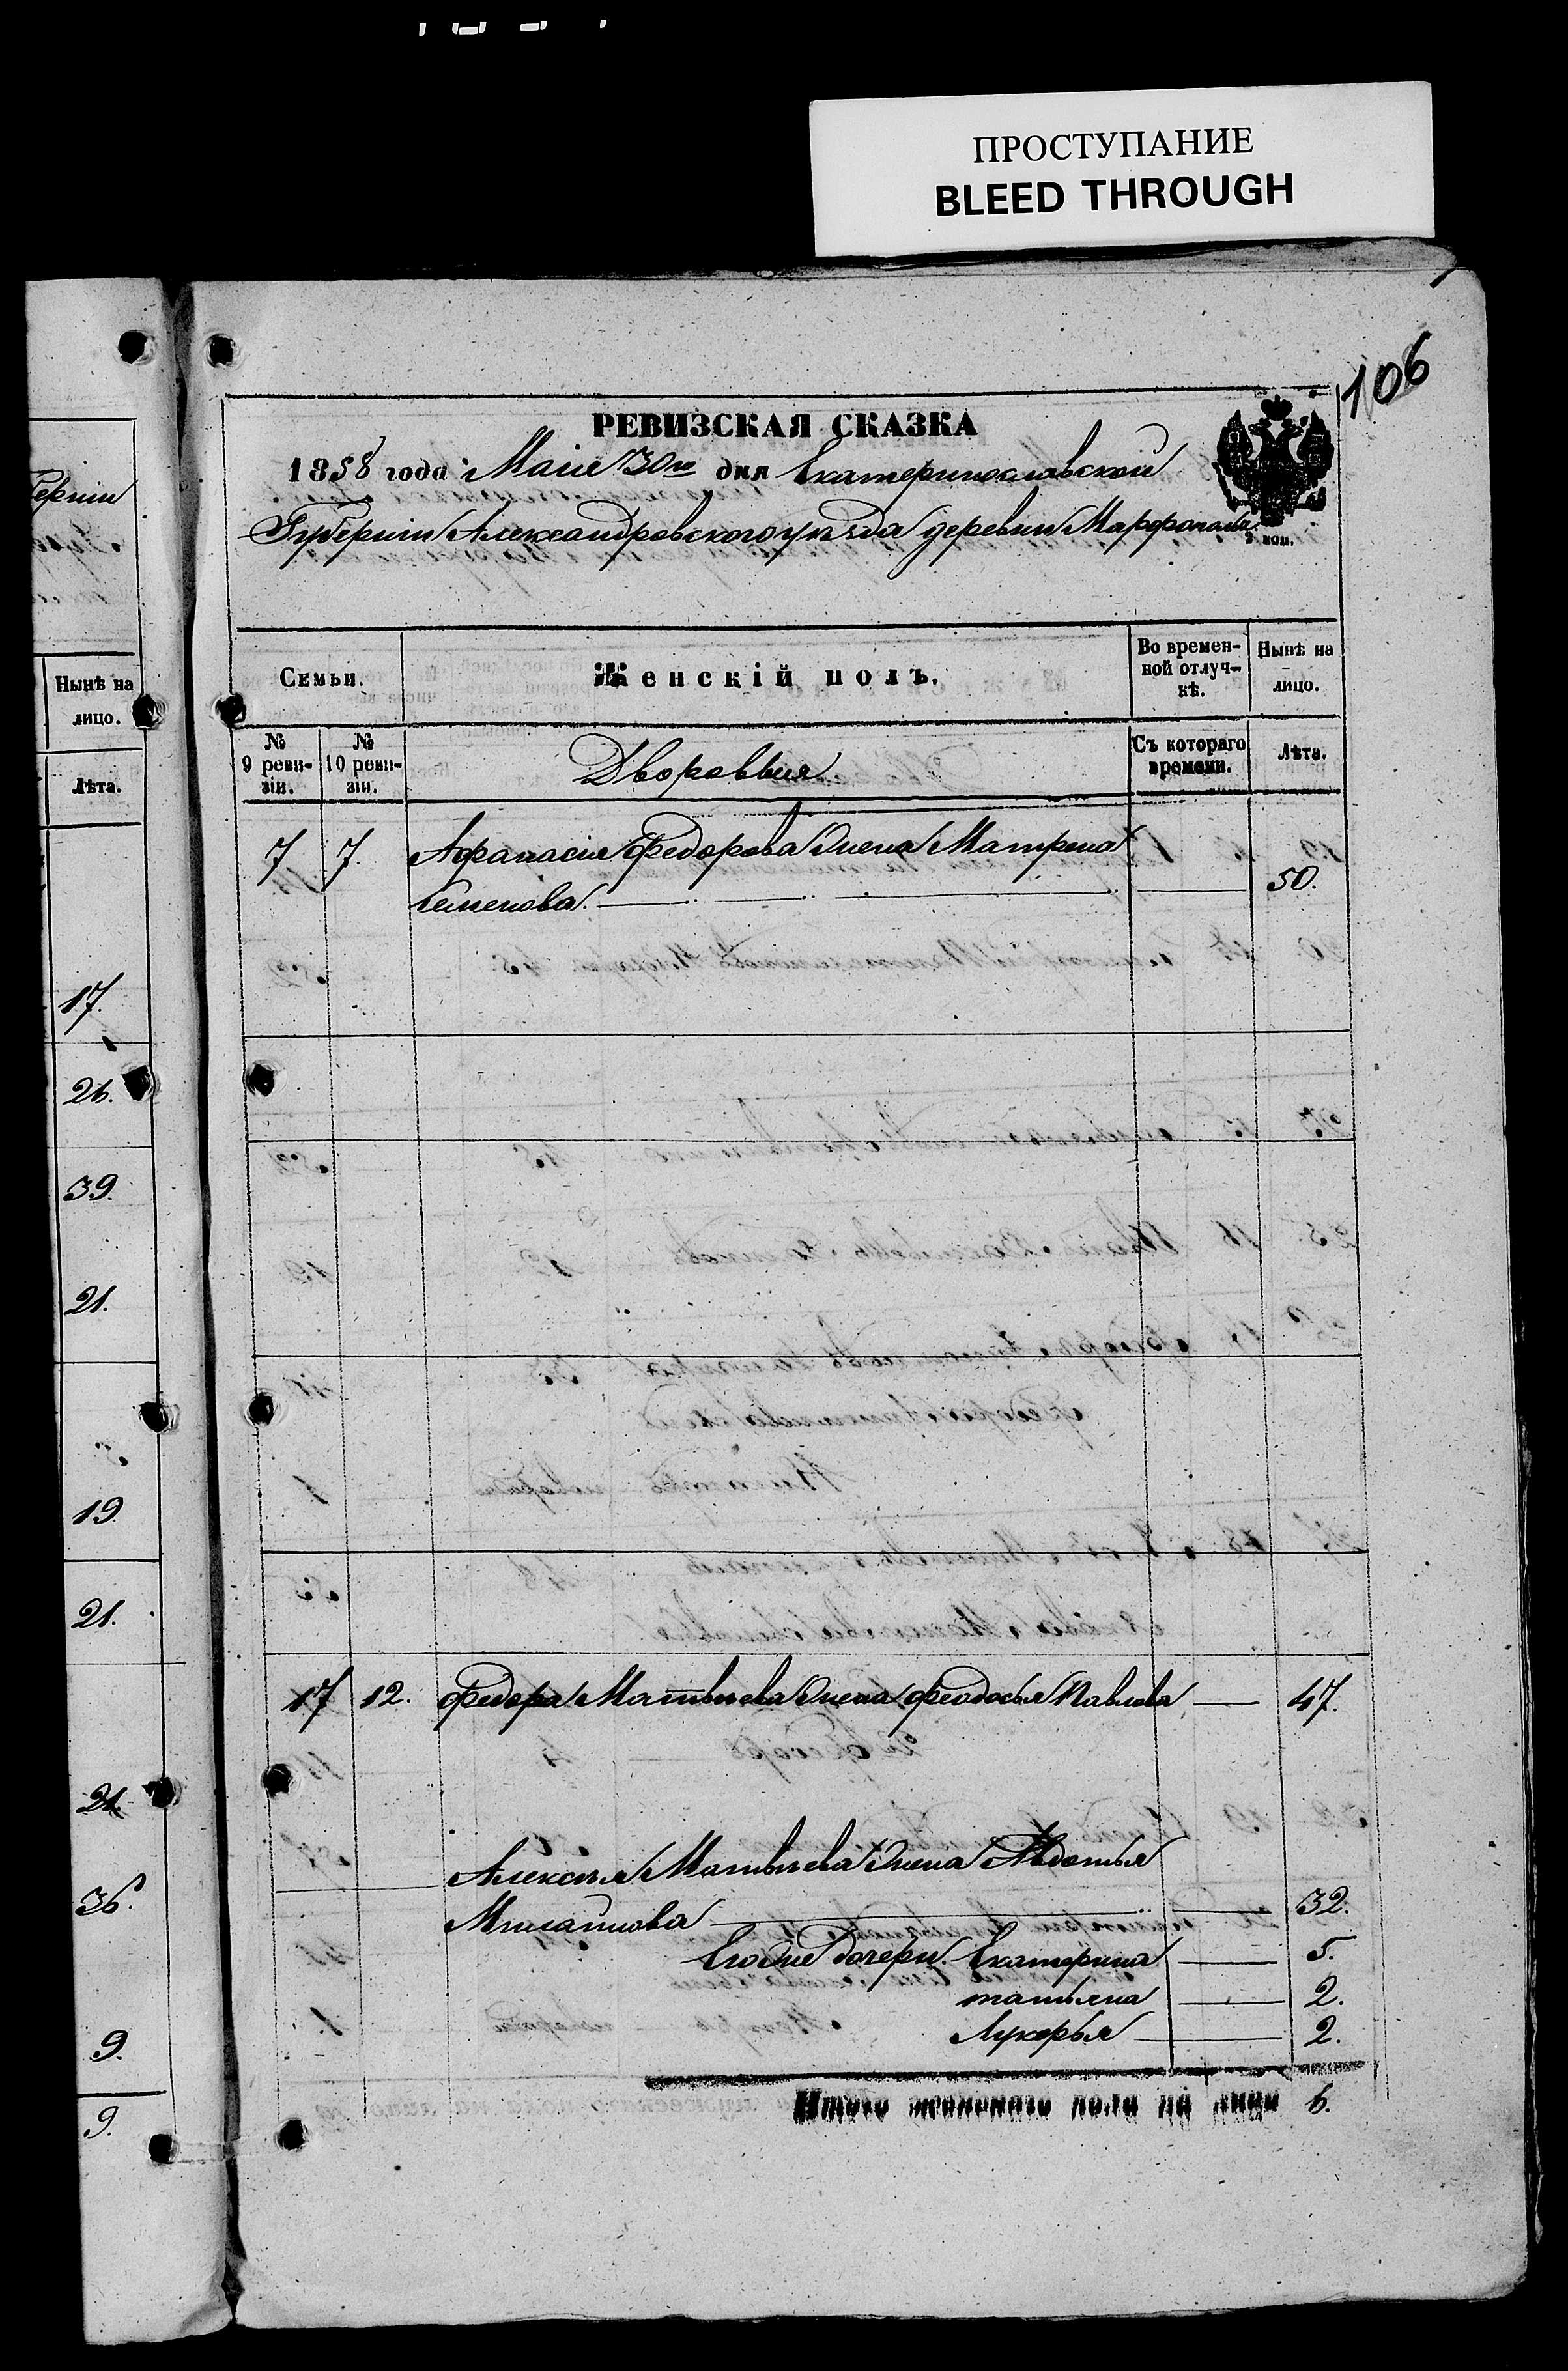 ПРОСТУПАНИЕ
BLEED THROUGH
106
РЕВИЗСКАЯ СКАЗКА
1858 года Маія 30го дня Екатеринославской
Губерніи Александровского уѣзда деревни
2 коп.
Семьи.
Женскій полъ.
Во времен-
ной отлуч-
кѣ.
Нынѣ на
лицо.
№
9 реви-
зіи.
№
10 реви-
зіи.
Дворовыя
Съ котораго
времени.
Лѣта.
7 7. Афанасія Федорова Жена Матрена
Семенова. 50.
17 12. Федора Матвѣева Жена Феодосья Павлова 47.
Алексѣя Матвѣева Жена Авдотья
Михайлова 32.
Его же дочери. Екатерина 5.
татьяна 2.
Лукерья 2.
Итого женскаго пола на лицо 6.
Нынѣ на
лицо.
Лѣта.
17.
26.
39.
21.
19.
21.
21.
36.
9.
9.